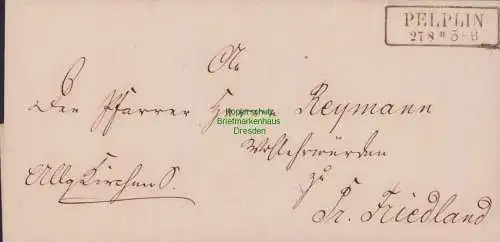 PELPLIN
27 8 * 5-6
An
Den Pfarrer Herrn Reymann
Kopierschutz
Briefmarkenhaus
Dresden
Wohlehrwürden
zu
Allg Kirchen S.
Pr. Friedland